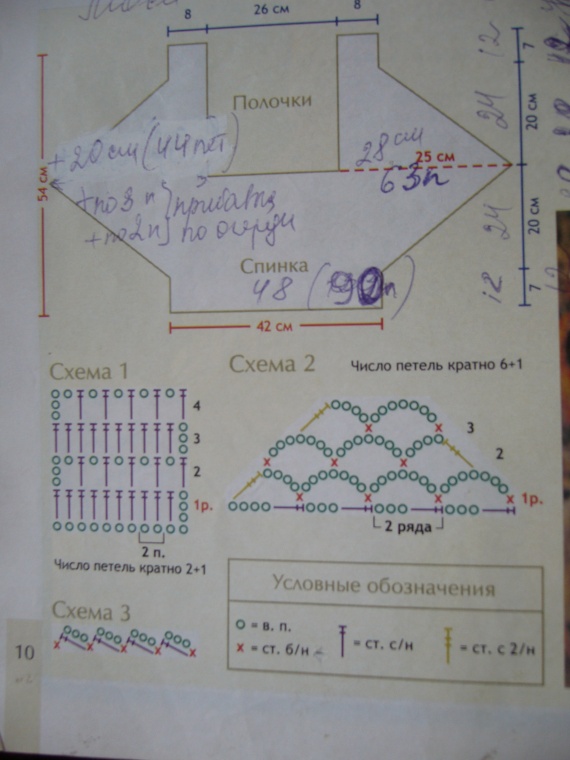 8 26 см 8
Полочки
7
12
20 см
24
+20 см (44 пет)
28 см
25 см
63п
54 см
+ по 3 п } прибавка
+ по 2 п } по очереди
20 см
24
Спинка
48
7
12
42 см
Схема 1
Схема 2
Число петель кратно 6+1
4
3
2
1р.
2 п.
Число петель кратно 2+1
3
2
1р.
2 ряда
Схема 3
Условные обозначения
= в. п.
= ст. б/н
= ст. с/н
= ст. с 2/н
10